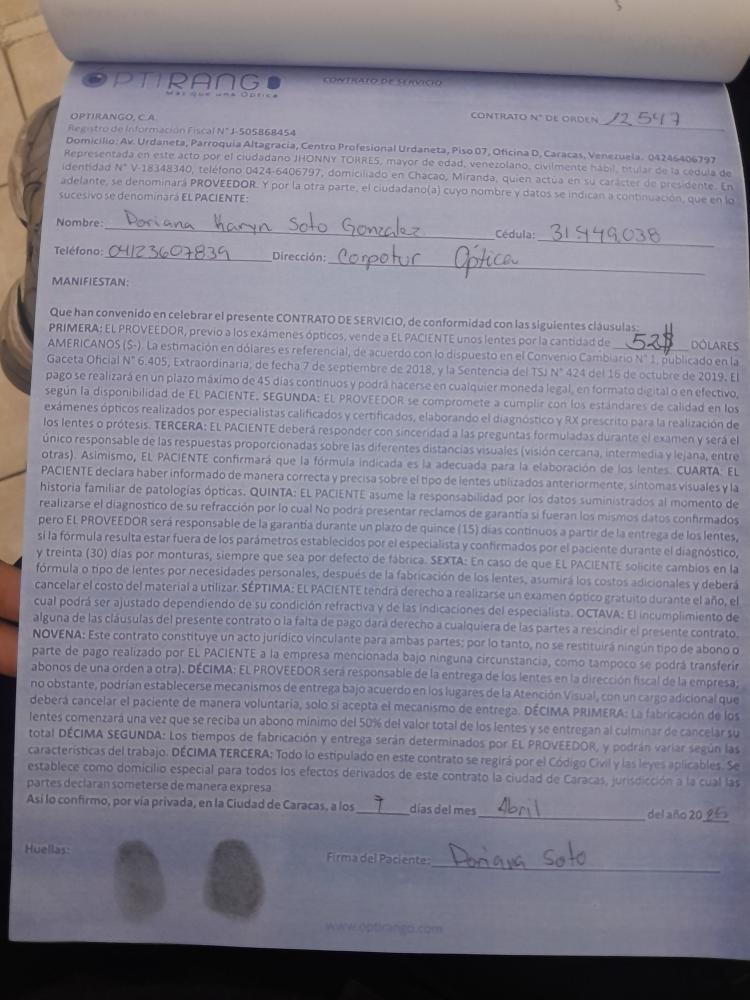 OPTIRANGO
Más que una Óptica
CONTRATO DE SERVICIO
CONTRATO N° DE ORDEN 12547
OPTIRANGO, C.A.
Registro de Información Fiscal N° J-505868454
Domicilio: Av. Urdaneta, Parroquia Altagracia, Centro Profesional Urdaneta, Piso 07, Oficina D, Caracas, Venezuela. 04246406797
Representada en este acto por el ciudadano JHONNY TORRES, mayor de edad, venezolano, civilmente hábil, titular de la cédula de
identidad N° V-18348340, teléfono 0424-6406797, domiciliado en Chacao, Miranda, quien actúa en su carácter de presidente. En
adelante, se denominará PROVEEDOR. Y por la otra parte, el ciudadano(a) cuyo nombre y datos se indican a continuación, que en lo
sucesivo se denominará EL PACIENTE:
Nombre: Doriana Karyn Soto Gonzalez Cédula: 31.449.038
Teléfono: 04123607839 Dirección: Corpotur Óptica
MANIFIESTAN:
Que han convenido en celebrar el presente CONTRATO DE SERVICIO, de conformidad con las siguientes cláusulas:
PRIMERA: EL PROVEEDOR, previo a los exámenes ópticos, vende a EL PACIENTE unos lentes por la cantidad de 52$ DÓLARES
AMERICANOS ($-). La estimación en dólares es referencial, de acuerdo con lo dispuesto en el Convenio Cambiario N° 1, publicado en la
Gaceta Oficial N° 6.405, Extraordinaria, de fecha 7 de septiembre de 2018, y la Sentencia del TSJ N° 424 del 16 de octubre de 2019. El
pago se realizará en un plazo máximo de 45 días continuos y podrá hacerse en cualquier moneda legal, en formato digital o en efectivo,
según la disponibilidad de EL PACIENTE. SEGUNDA: EL PROVEEDOR se compromete a cumplir con los estándares de calidad en los
exámenes ópticos realizados por especialistas calificados y certificados, elaborando el diagnóstico y RX prescrito para la realización de
los lentes o prótesis. TERCERA: EL PACIENTE deberá responder con sinceridad a las preguntas formuladas durante el examen y será el
único responsable de las respuestas proporcionadas sobre las diferentes distancias visuales (visión cercana, intermedia y lejana, entre
otras). Asimismo, EL PACIENTE confirmará que la fórmula indicada es la adecuada para la elaboración de los lentes. CUARTA: EL
PACIENTE declara haber informado de manera correcta y precisa sobre el tipo de lentes utilizados anteriormente, síntomas visuales y la
historia familiar de patologías ópticas. QUINTA: EL PACIENTE asume la responsabilidad por los datos suministrados al momento de
realizarse el diagnostico de su refracción por lo cual No podrá presentar reclamos de garantía si fueran los mismos datos confirmados
pero EL PROVEEDOR será responsable de la garantía durante un plazo de quince (15) días continuos a partir de la entrega de los lentes,
si la fórmula resulta estar fuera de los parámetros establecidos por el especialista y confirmados por el paciente durante el diagnóstico,
y treinta (30) días por monturas, siempre que sea por defecto de fábrica. SEXTA: En caso de que EL PACIENTE solicite cambios en la
fórmula o tipo de lentes por necesidades personales, después de la fabricación de los lentes, asumirá los costos adicionales y deberá
cancelar el costo del material a utilizar. SÉPTIMA: EL PACIENTE tendrá derecho a realizarse un examen óptico gratuito durante el año, el
cual podrá ser ajustado dependiendo de su condición refractiva y de las indicaciones del especialista. OCTAVA: El incumplimiento de
alguna de las cláusulas del presente contrato o la falta de pago dará derecho a cualquiera de las partes a rescindir el presente contrato.
NOVENA: Este contrato constituye un acto jurídico vinculante para ambas partes; por lo tanto, no se restituirá ningún tipo de abono o
parte de pago realizado por EL PACIENTE a la empresa mencionada bajo ninguna circunstancia, como tampoco se podrá transferir
abonos de una orden a otra). DÉCIMA: EL PROVEEDOR será responsable de la entrega de los lentes en la dirección fiscal de la empresa;
no obstante, podrían establecerse mecanismos de entrega bajo acuerdo en los lugares de la Atención Visual, con un cargo adicional que
deberá cancelar el paciente de manera voluntaria, solo si acepta el mecanismo de entrega. DÉCIMA PRIMERA: La fabricación de los
lentes comenzará una vez que se reciba un abono mínimo del 50% del valor total de los lentes y se entregan al culminar de cancelar su
total DÉCIMA SEGUNDA: Los tiempos de fabricación y entrega serán determinados por EL PROVEEDOR, y podrán variar según las
características del trabajo. DÉCIMA TERCERA: Todo lo estipulado en este contrato se regirá por el Código Civil y las leyes aplicables. Se
establece como domicilio especial para todos los efectos derivados de este contrato la ciudad de Caracas, jurisdicción a la cual las
partes declaran someterse de manera expresa.
Así lo confirmo, por vía privada, en la Ciudad de Caracas, a los 7 días del mes Abril del año 20
Huellas:
Firma del Paciente: Doriana Soto
www.optirango.com